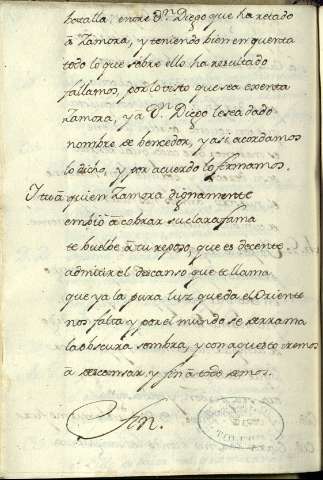 batalla: entre Dn. Diego que ha retado
a Zamora, y teniendo bien en quenta
todo lo que sobre ello ha resultado
fallamos, por lo testo que sea esenta
Zamora, y a Dn. Diego le sea dado
nombre de bencedor, y asi acordamos
lo dicho, y por acuerdo lo firmamos.
Y tu a quien Zamora dignamente
embió a cobrar su clara fama
te buelbe a tu reposo, que es decente
admitir el descanso que te llama
que ya la pura luz que da el Oriente
nos falta y por el mundo se derrama
la obscura sombra, y con aquesto iremos
a descansar, y fin a todo demos.
Fin.
TOLEDO